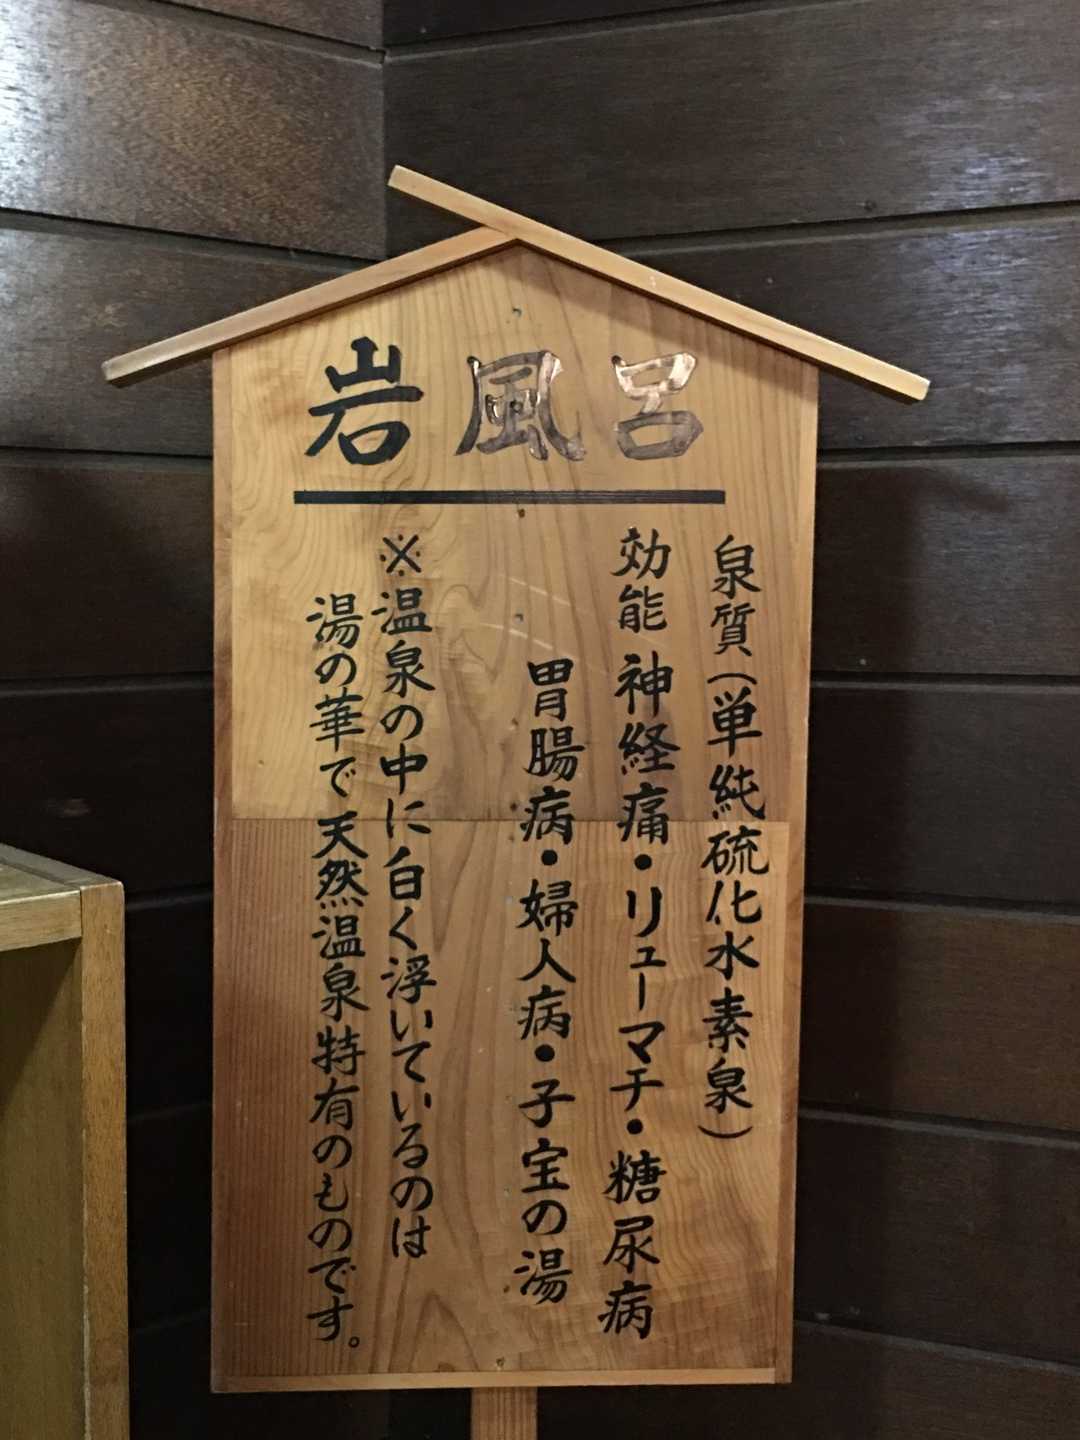 岩風呂
泉質(単純硫化水素泉)
効能 神経痛・リューマチ・糖尿病
胃腸病・婦人病・子宝の湯
※温泉の中に白く浮いているのは
湯の華で天然温泉特有のものです。